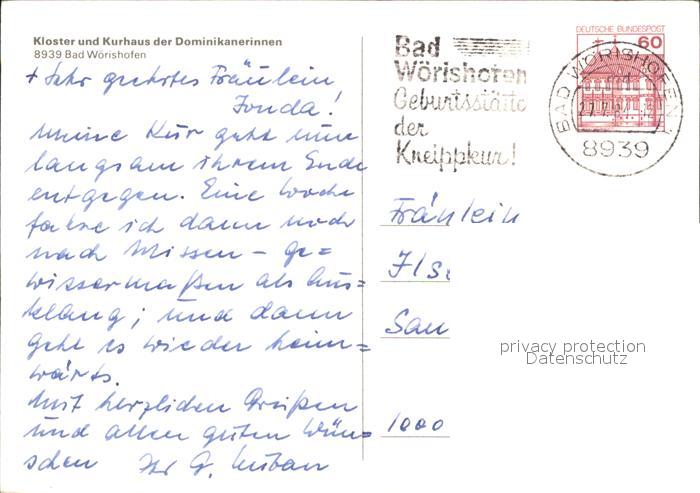 Kloster und Kurhaus der Dominikanerinnen
8939 Bad Wörishofen
+ Sehr geehrtes Fräulein
Jonda!
Meine Kur geht nun
langsam ihrem Ende
entgegen. Eine Woche
fahre ich dann noch
nach Missen – ge=
wissermaßen als Aus=
klang; und dann
geht es wieder heim=
wärts.
Mit herzlichen Grüßen
und allen guten Wün=
schen Ihr G.
Bad
Wörishofen
Geburtsstätte
der
Kneippkur!
DEUTSCHE BUNDESPOST
60
BAD WÖRISHOFEN
8939
Fräulein
Ilse
San
1000
privacy protection
Datenschutz